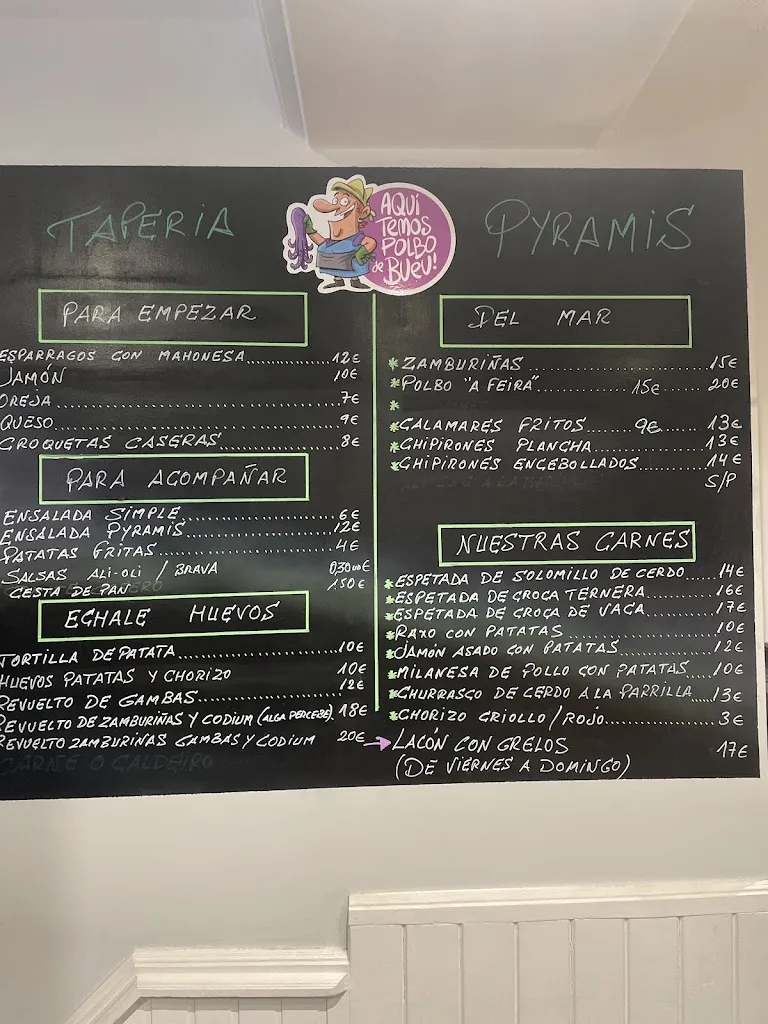 TAPERIA
AQUÍ
TEMOS
POLBO
de BUEU!
PYRAMIS
PARA EMPEZAR
ESPARRAGOS CON MAHONESA 12€
JAMÓN 10€
OREJA 7€
QUESO 9€
CROQUETAS CASERAS 8€
PARA ACOMPAÑAR
ENSALADA SIMPLE 6€
ENSALADA PYRAMIS 12€
PATATAS FRITAS 4€
SALSAS ALI-OLI / BRAVA 0,30 UD €
CESTA DE PAN 1,50€
ECHALE HUEVOS
TORTILLA DE PATATA 10€
HUEVOS PATATAS Y CHORIZO 10€
REVUELTO DE GAMBAS 12€
REVUELTO DE ZAMBURIÑAS Y CODIUM (ALGA PERCEBE) 18€
REVUELTO ZAMBURIÑAS GAMBAS Y CODIUM 20€
CARNE O CALDEIRO
DEL MAR
ZAMBURIÑAS 15€
POLBO "A FEIRA" 15€ 20€
CALAMARES FRITOS 9€ 13€
CHIPIRONES PLANCHA 13€
CHIPIRONES ENCEBOLLADOS 14€
S/P
NUESTRAS CARNES
ESPETADA DE SOLOMILLO DE CERDO 14€
ESPETADA DE CROCA TERNERA 16€
ESPETADA DE CROCA DE VACA 17€
RAXO CON PATATAS 10€
JAMÓN ASADO CON PATATAS 12€
MILANESA DE POLLO CON PATATAS 10€
CHURRASCO DE CERDO A LA PARRILLA 13€
CHORIZO CRIOLLO / ROJO 3€
LACÓN CON GRELOS 17€
(DE VIERNES A DOMINGO)